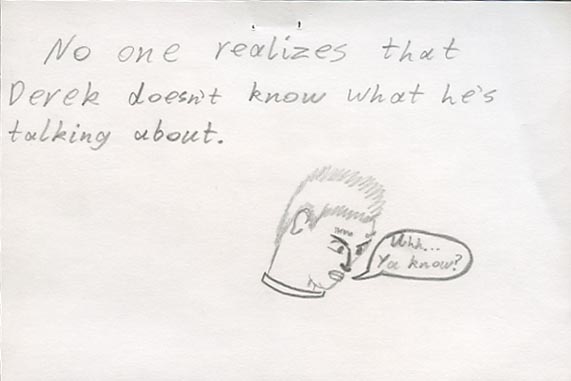 No one realizes that
Derek doesn't know what he's
talking about.
Uhh...
Ya know?